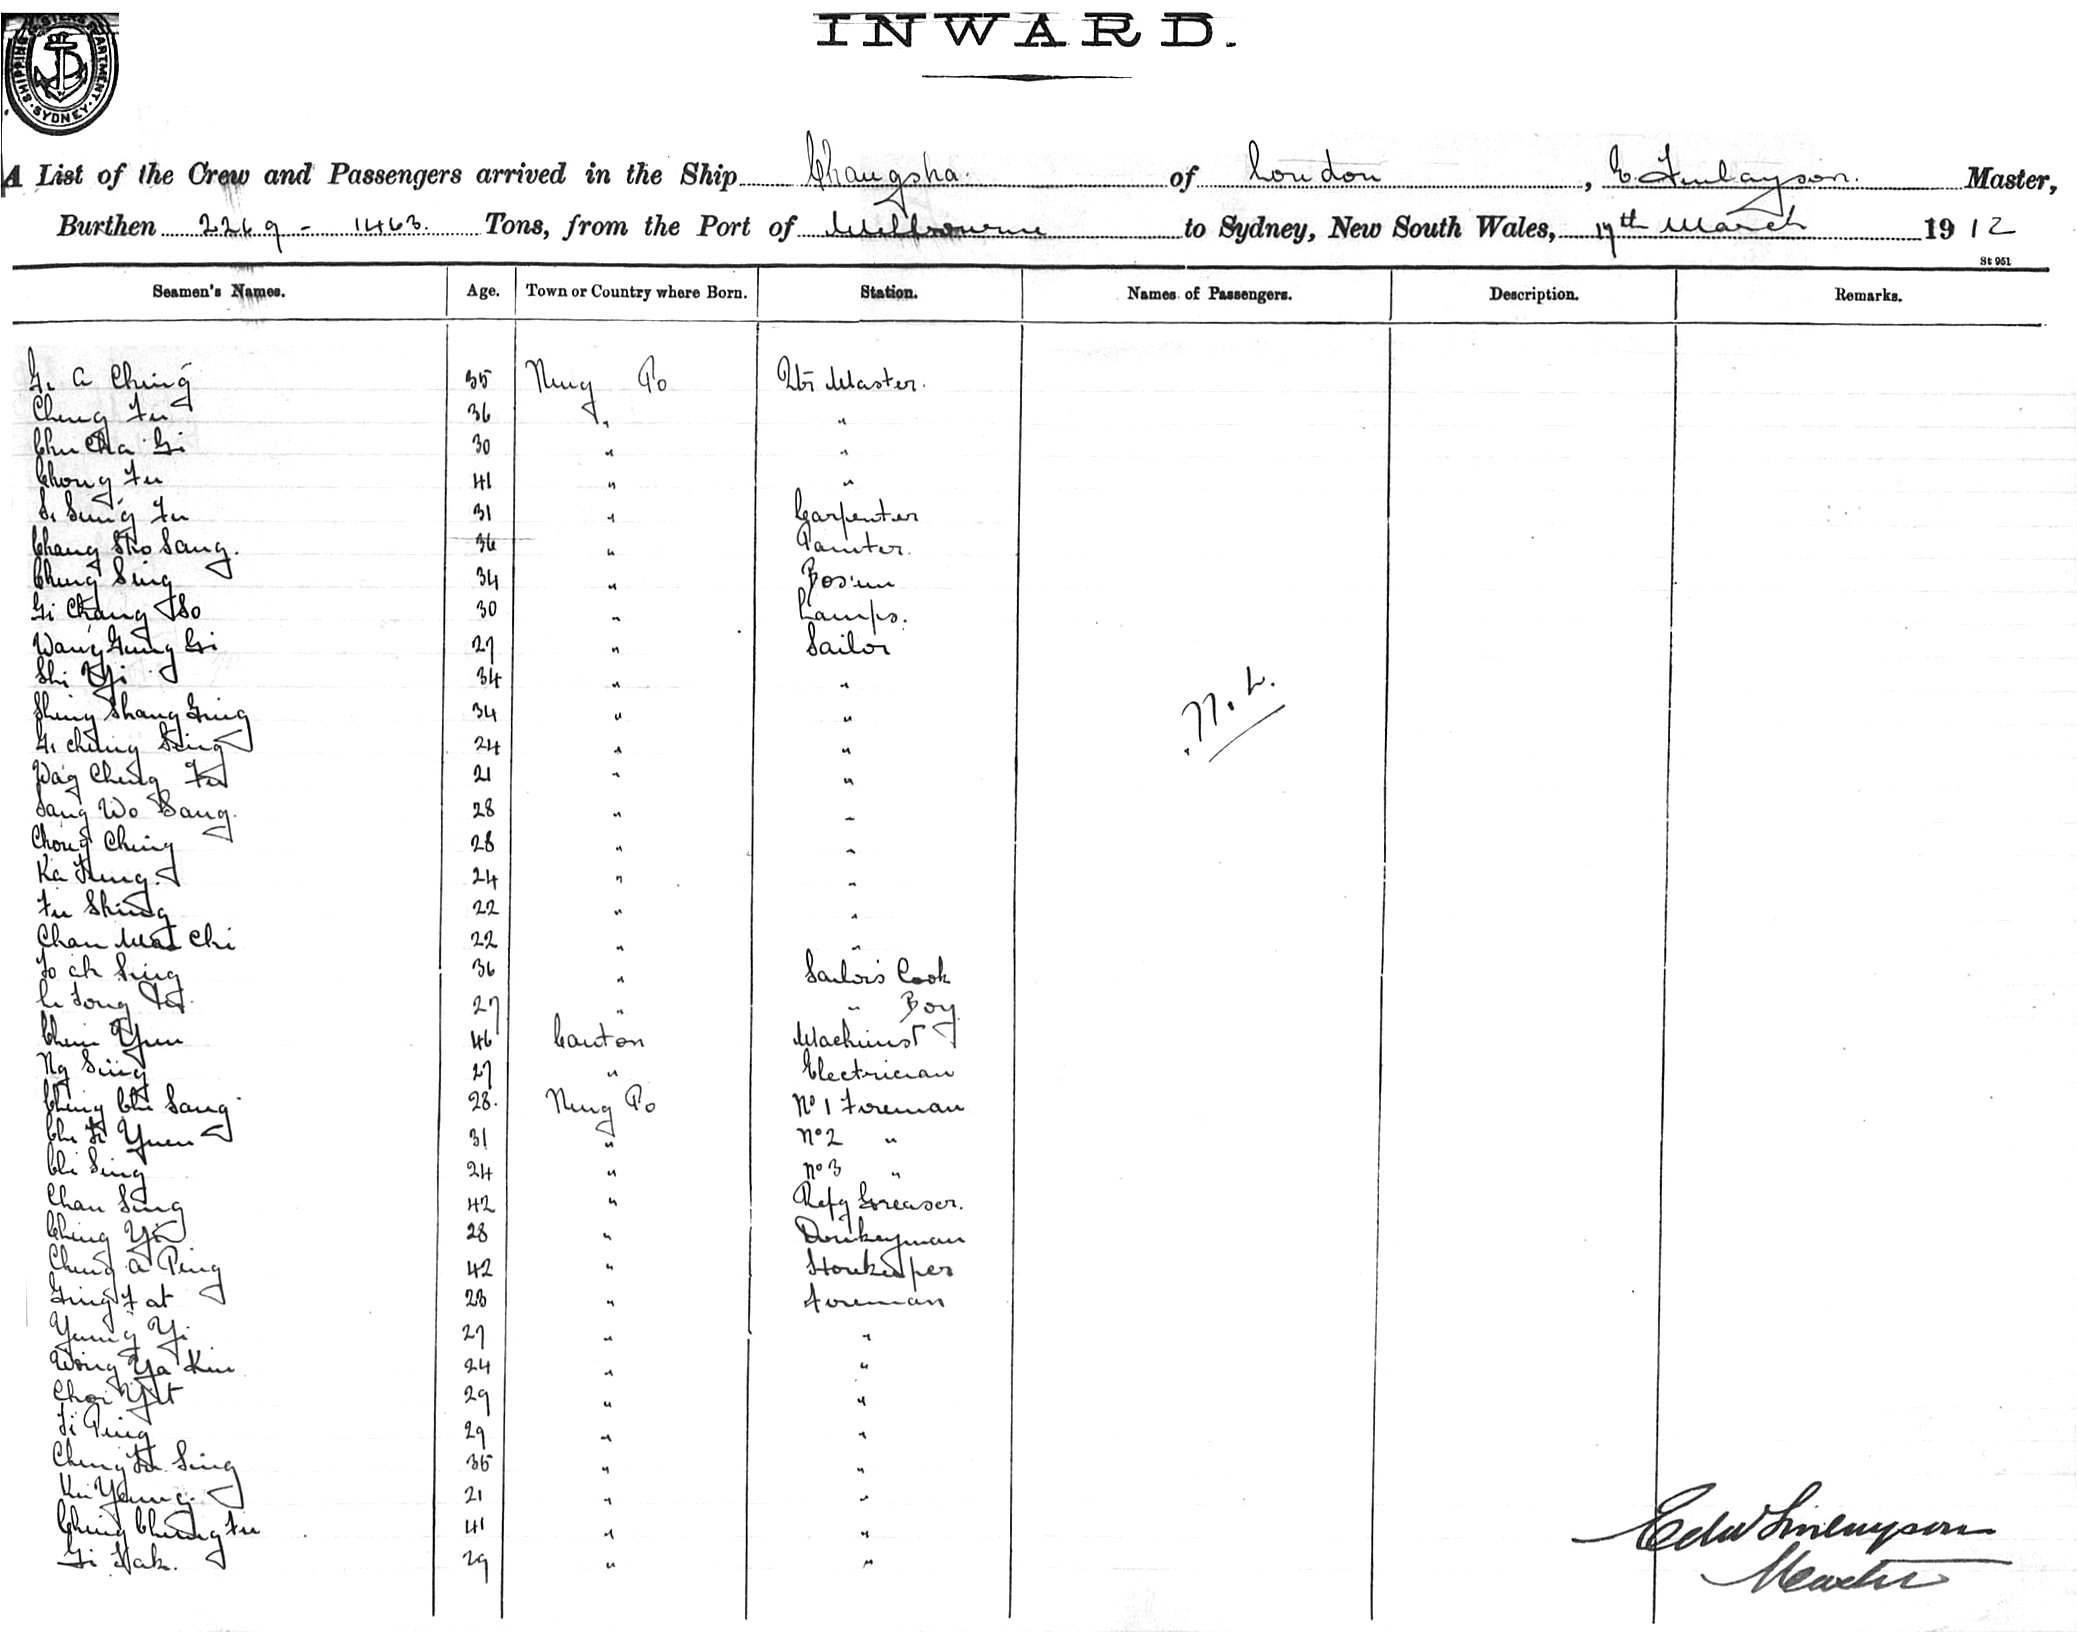 SHIPPING MASTER'S DEPARTMENT · SYDNEY ·
INWARD.
A List of the Crew and Passengers arrived in the Ship Changsha. of London, E. Finlayson. Master,
Burthen 2269 - 1463. Tons, from the Port of Melbourne to Sydney, New South Wales, 17th March 1912
St 951
Seamen's Names. Age. Town or Country where Born. Station. Names of Passengers. Description. Remarks.
Gi A Ching 35 Ning Po Qtr Master.
Ching Fu 36 " "
Chu Cha Gi 30 " "
Chong Fu 41 " "
Si Sung Fu 31 " Carpenter
Chang Sho Sang. 36 " Painter.
Chung Sing 34 " Bos'un
Gi Chang So 30 " Lamps.
Wang Gung Gi 27 " Sailor
Shi Yi 34 " "
Shing Shang Ging 34 " "
Gi Ching Sing 24 " "
Wag Ching Fu 21 " "
Sang Wo Sang. 28 " "
Chong Ching 28 " "
Ka Fung. 24 " "
Fu Shing 22 " "
Chan Wai Chi 22 " "
Fo Ah Sing 36 " Sailor's Cook
Li Fong 27 " " Boy
Chin Yun 46 Canton Machinist
Ng Sing 27 " Electrician
Ching Chi Sang 28. Ning Po No 1 Fireman
Chi Fi Yuen 31 " No 2 "
Chi Sing 24 " No 3 "
Chan Sing 42 " Refg Greaser.
Ching Yi 28 " Donkeyman
Chung A Ping 42 " Storekeeper
Ging Fat 23 " Fireman
Yung Yi 27 " "
Wong Ya Kin 24 " "
Choi Yit 29 " "
Fi Ping 29 " "
Ching Fu Sing 35 " "
Ku Young. 21 " "
Ching Chung Fu 41 " "
Gi Hak. 29 " "
Edw Finlayson
Master